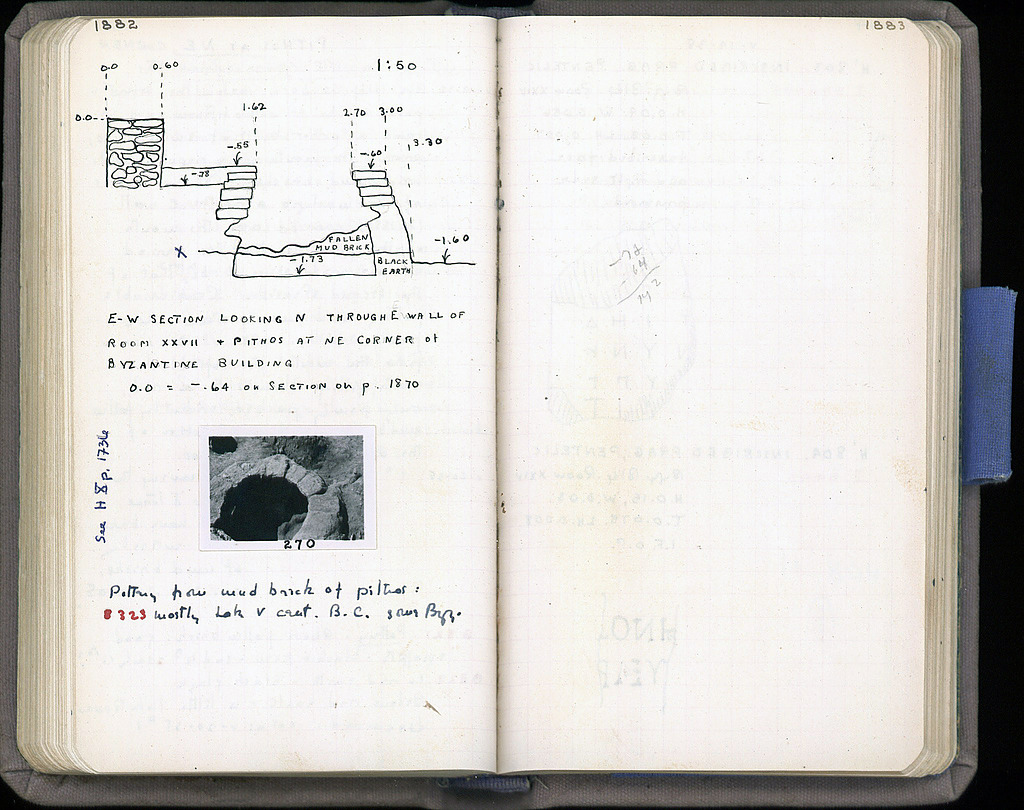 1882
1883
0.0 0.60 1:50
1.62 2.70 3.00
0.0 3.30
-.55 -.60
-.78
-1.60
FALLEN
MUD BRICK
X
-1.73 BLACK
EARTH
E-W SECTION LOOKING N THROUGH E WALL OF
ROOM XXVII + PITHOS AT NE CORNER OF
BYZANTINE BUILDING
0.0 = -.64 on SECTION on p. 1870
See H X p. 1736
270
Pottery from mud brick of pithos:
B 323 mostly late V cent. B.C. some Byz.
-78
64
142